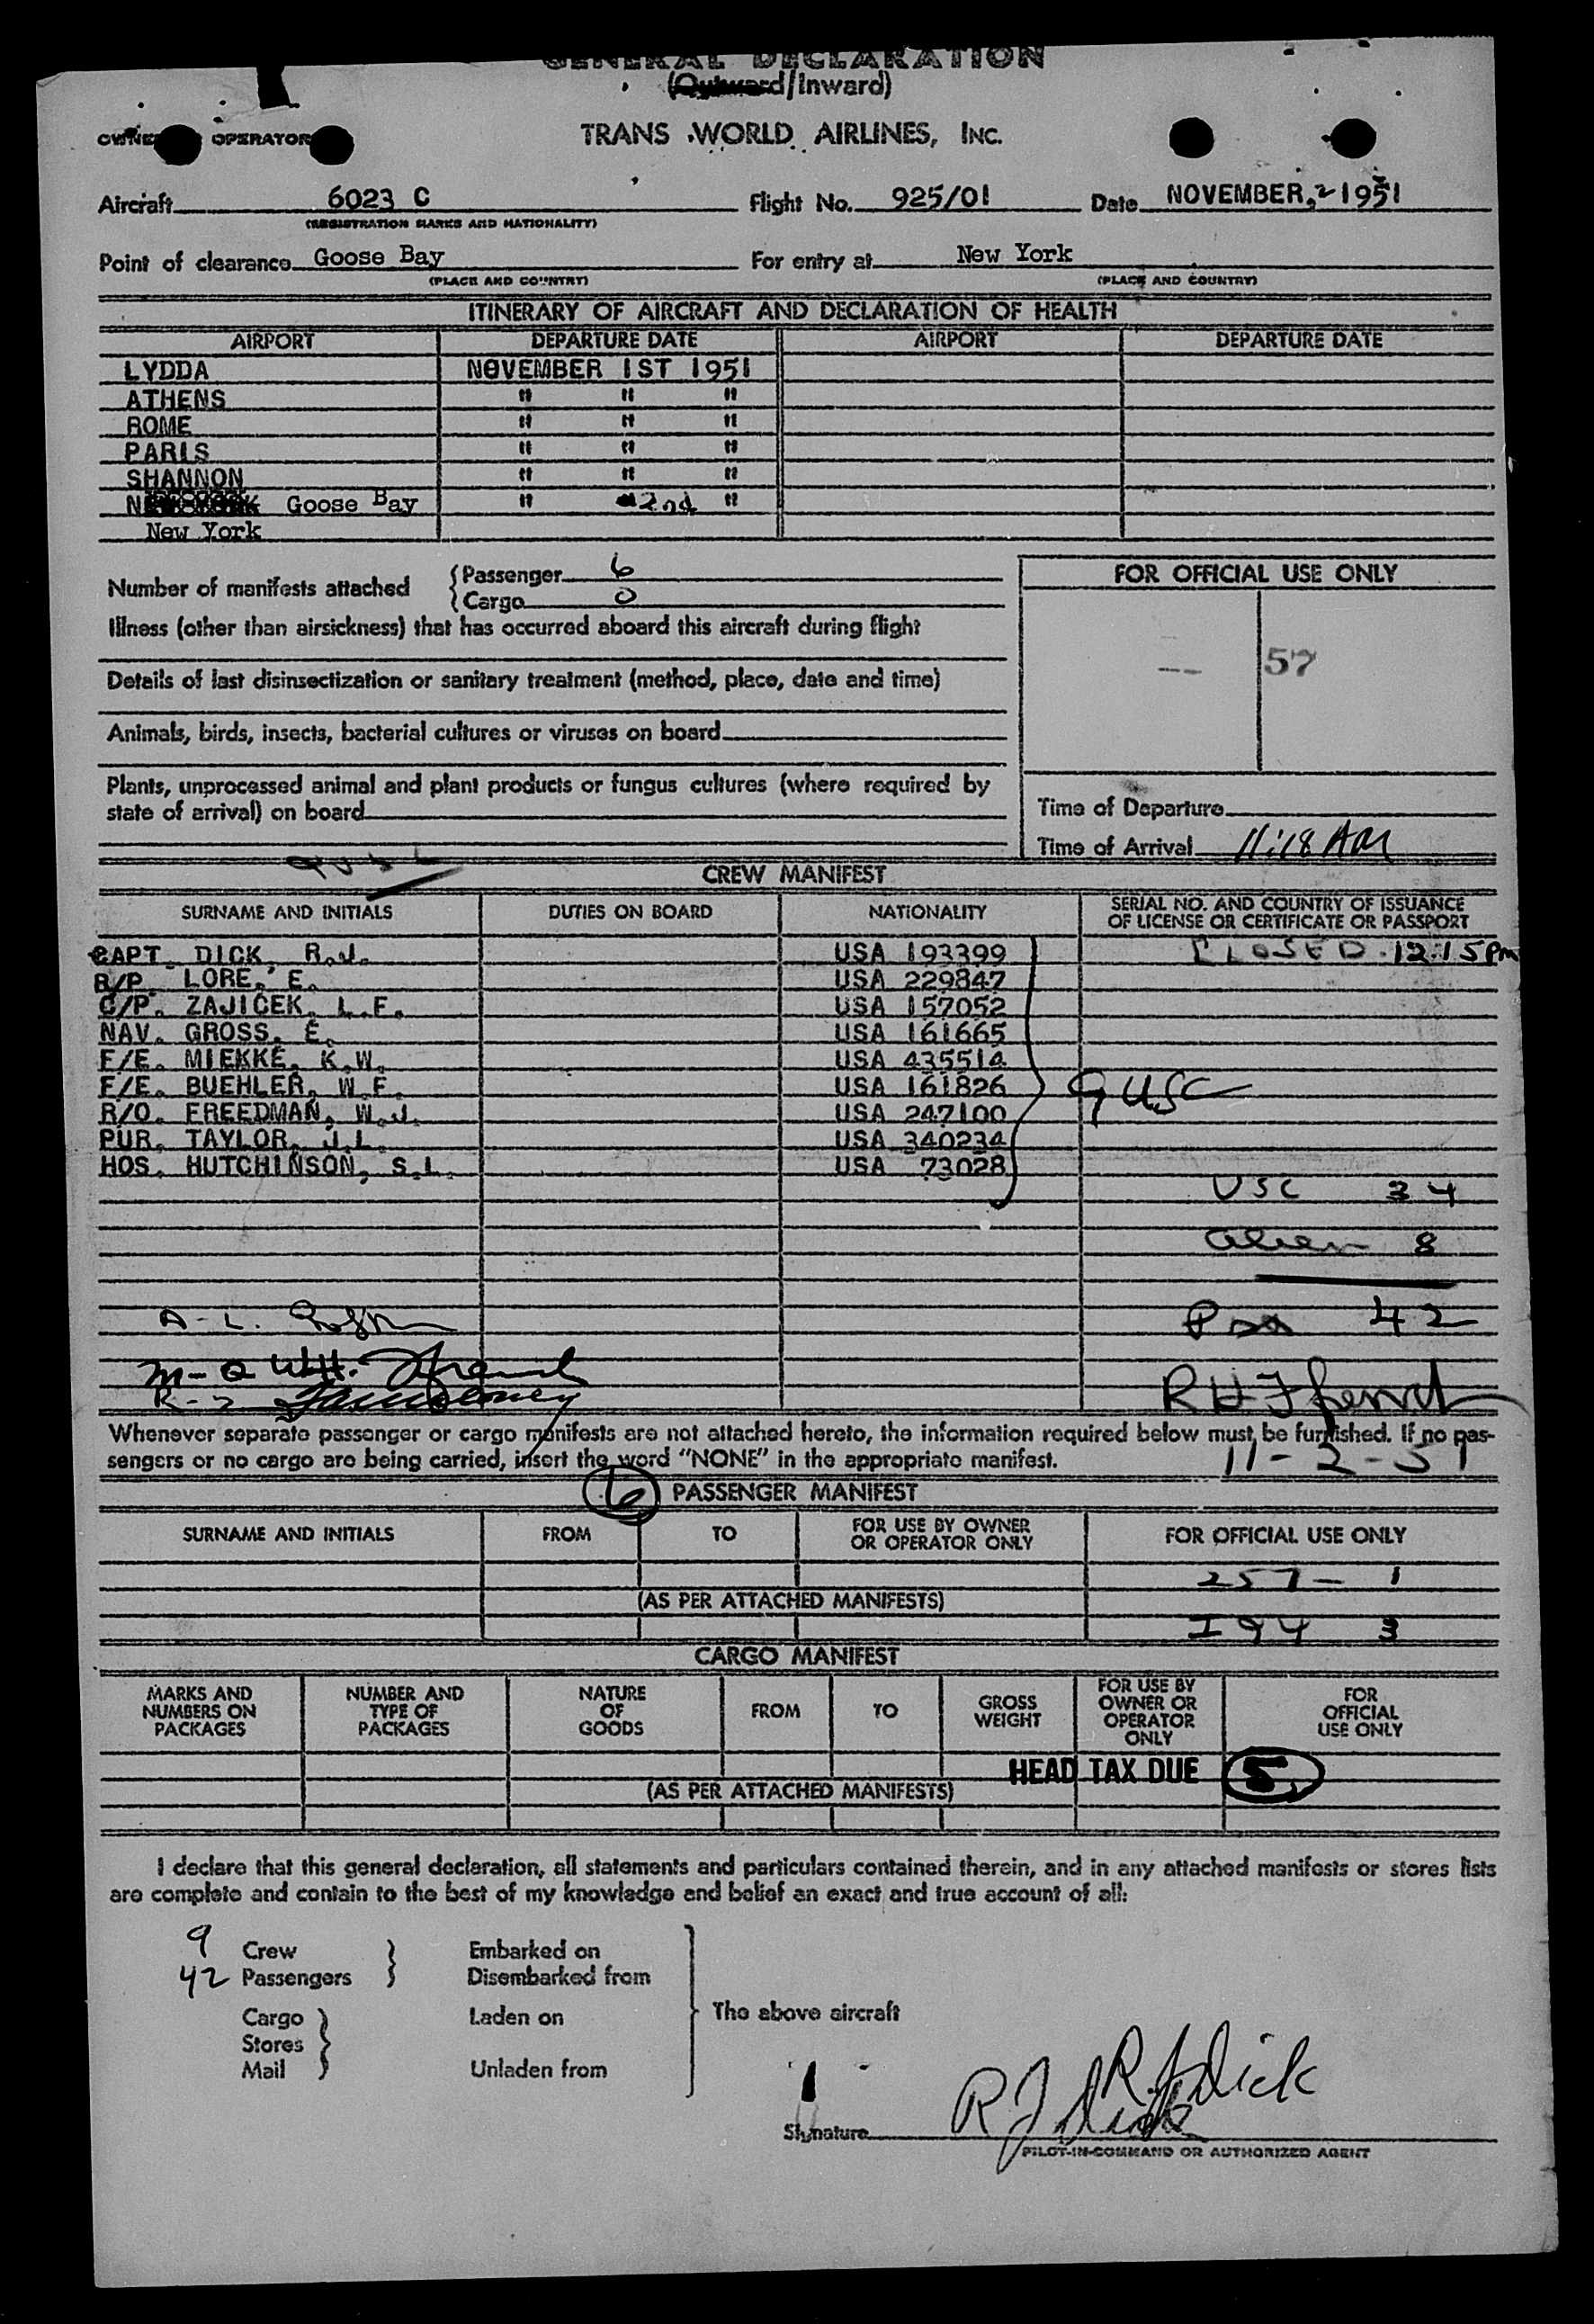 GENERAL DECLARATION
(Outward/Inward)
OWNER OPERATOR TRANS WORLD AIRLINES, INC.
Aircraft 6023 C Flight No. 925/01 Date NOVEMBER, 2 1951
(REGISTRATION MARKS AND NATIONALITY)
Point of clearance Goose Bay For entry at New York
(PLACE AND COUNTRY) (PLACE AND COUNTRY)
ITINERARY OF AIRCRAFT AND DECLARATION OF HEALTH
AIRPORT DEPARTURE DATE AIRPORT DEPARTURE DATE
LYDDA NOVEMBER 1ST 1951
ATHENS " " "
ROME " " "
PARIS " " "
SHANNON " " "
Goose Bay " 2nd "
New York
Number of manifests attached { Passenger 6
{ Cargo 0
FOR OFFICIAL USE ONLY
Illness (other than airsickness) that has occurred aboard this aircraft during flight
-- 57
Details of last disinsectization or sanitary treatment (method, place, date and time)
Animals, birds, insects, bacterial cultures or viruses on board
Plants, unprocessed animal and plant products or fungus cultures (where required by
state of arrival) on board
Time of Departure
Time of Arrival 11:18 AM
CREW MANIFEST
SURNAME AND INITIALS DUTIES ON BOARD NATIONALITY SERIAL NO. AND COUNTRY OF ISSUANCE
OF LICENSE OR CERTIFICATE OR PASSPORT
CAPT. DICK, R.J. USA 193399 CLOSED 12:15 PM
R/P. LORE, E. USA 229847
C/P. ZAJICEK, L.F. USA 157052
NAV. GROSS, E. USA 161665
F/E. MIEKKE, K.W. USA 435514
F/E. BUEHLER, W.F. USA 161826 9 USC
R/O. FREEDMAN, W.J. USA 247100
PUR. TAYLOR, J.L. USA 340234
HOS. HUTCHINSON, S.L. USA 73028
USC 34
Alien 8
Pax 42
11-2-51
Whenever separate passenger or cargo manifests are not attached hereto, the information required below must be furnished. If no pas-
sengers or no cargo are being carried, insert the word "NONE" in the appropriate manifest.
6 PASSENGER MANIFEST
SURNAME AND INITIALS FROM TO FOR USE BY OWNER
OR OPERATOR ONLY FOR OFFICIAL USE ONLY
257 - 1
(AS PER ATTACHED MANIFESTS)
I 94 3
CARGO MANIFEST
MARKS AND
NUMBERS ON
PACKAGES NUMBER AND
TYPE OF
PACKAGES NATURE
OF
GOODS FROM TO GROSS
WEIGHT FOR USE BY
OWNER OR
OPERATOR
ONLY FOR
OFFICIAL
USE ONLY
HEAD TAX DUE 5
(AS PER ATTACHED MANIFESTS)
I declare that this general declaration, all statements and particulars contained therein, and in any attached manifests or stores lists
are complete and contain to the best of my knowledge and belief an exact and true account of all:
9 Crew } Embarked on
42 Passengers } Disembarked from
Cargo } Laden on The above aircraft
Stores }
Mail } Unladen from
Signature R J Dick R.J. Dick
PILOT-IN-COMMAND OR AUTHORIZED AGENT